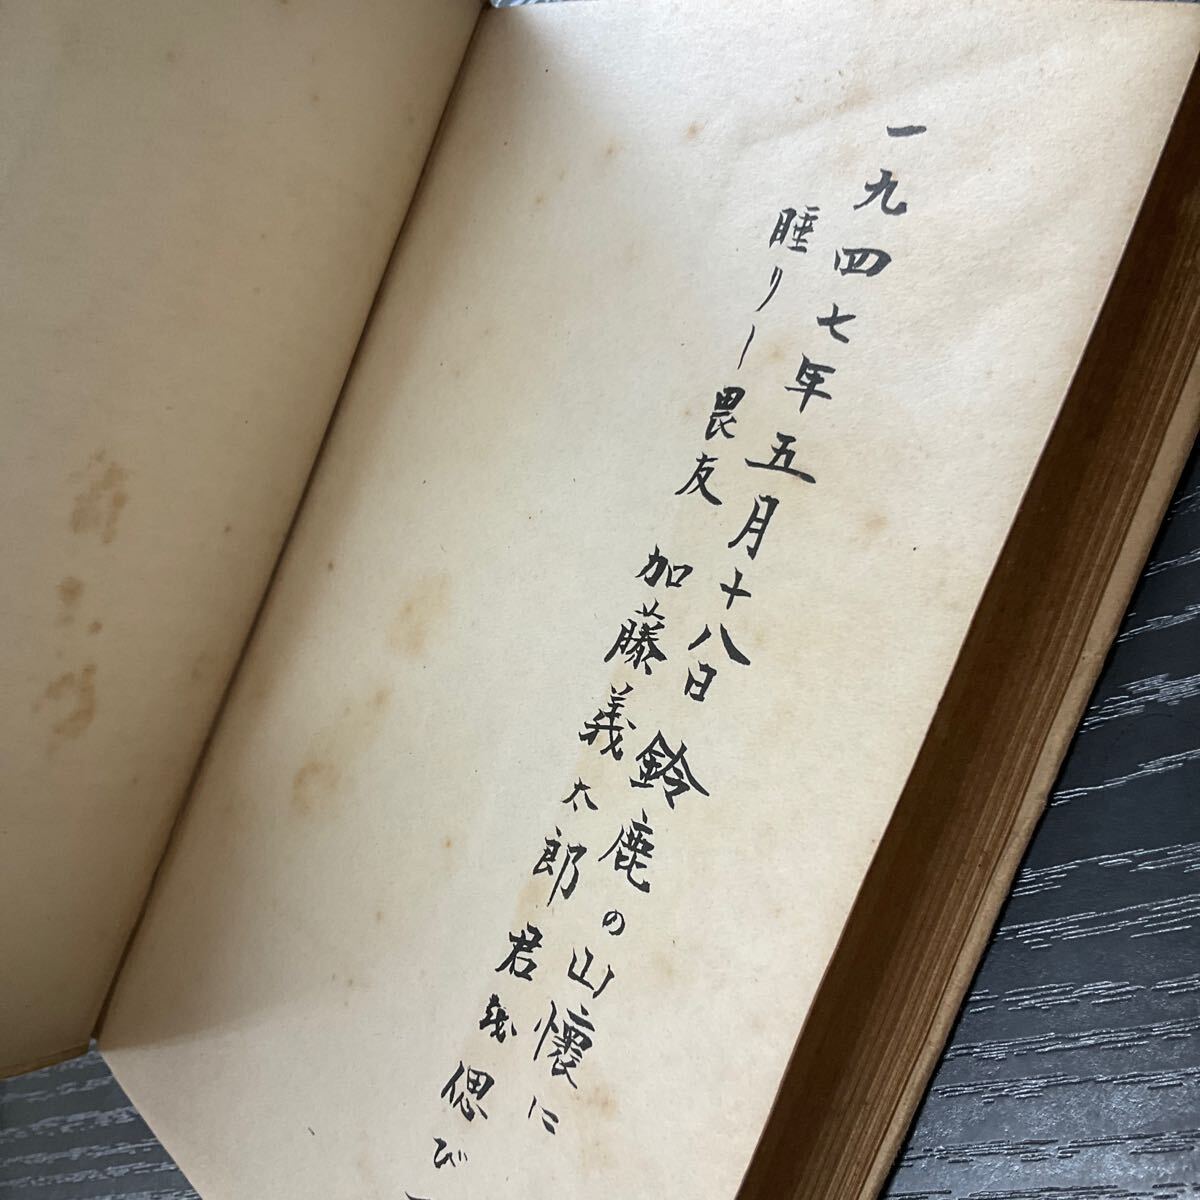 一九四七年五月十八日鈴鹿の山懐に
睡りし畏友 加藤義太郎君を偲び